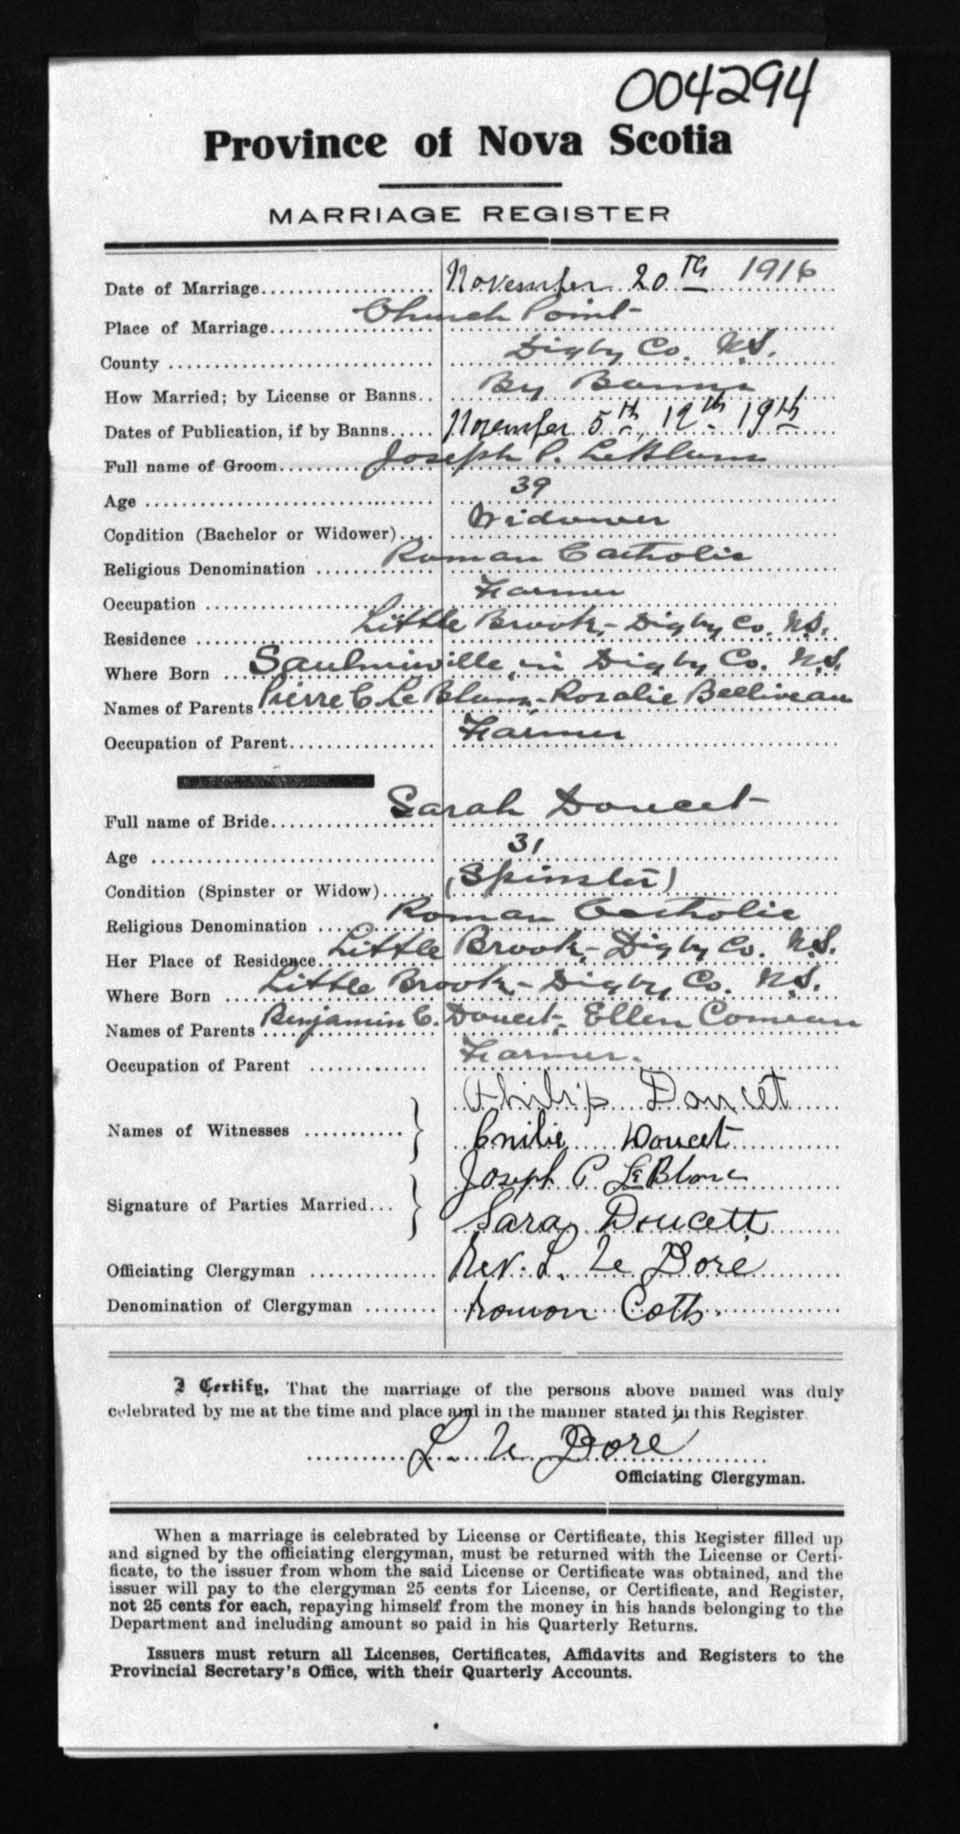 004294
Province of Nova Scotia
MARRIAGE REGISTER
Date of Marriage November 20th 1916
Place of Marriage Church Point
County Digby Co. N.S.
How Married; by License or Banns By Banns
Dates of Publication, if by Banns November 5th, 12th 19th
Full name of Groom Joseph P. LeBlanc
Age 39
Condition (Bachelor or Widower) Widower
Religious Denomination Roman Catholic
Occupation Farmer
Residence Little Brook, Digby Co. N.S.
Where Born Saulnierville, in Digby Co. N.S.
Names of Parents Pierre C. LeBlanc, Rosalie Belliveau
Occupation of Parent Farmer
Full name of Bride Sarah Doucet
Age 31
Condition (Spinster or Widow) (Spinster)
Religious Denomination Roman Catholic
Her Place of Residence Little Brook, Digby Co. N.S.
Where Born Little Brook, Digby Co. N.S.
Names of Parents Benjamin C. Doucet, Ellen Comeau
Occupation of Parent Farmer.
Philip Doucet
Names of Witnesses
Emilie Doucet
Joseph P LeBlanc
Signature of Parties Married
Sara Doucett
Officiating Clergyman Rev. L. Le Doré
Denomination of Clergyman Roman Cath.
I Certify, That the marriage of the persons above named was duly
celebrated by me at the time and place and in the manner stated in this Register
L. Le Doré
Officiating Clergyman.
When a marriage is celebrated by License or Certificate, this Register filled up
and signed by the officiating clergyman, must be returned with the License or Certi-
ficate, to the issuer from whom the said License or Certificate was obtained, and the
issuer will pay to the clergyman 25 cents for License, or Certificate, and Register,
not 25 cents for each, repaying himself from the money in his hands belonging to the
Department and including amount so paid in his Quarterly Returns.
Issuers must return all Licenses, Certificates, Affidavits and Registers to the
Provincial Secretary's Office, with their Quarterly Accounts.